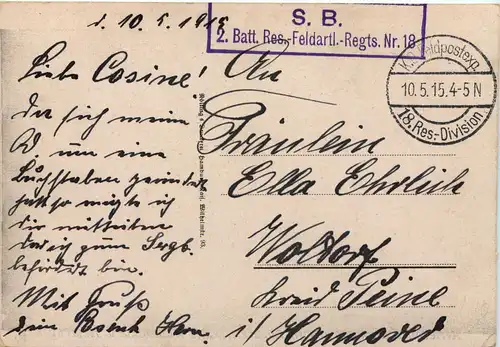 d. 10. 5. 1915
S. B.
2. Batt. Res.-Feldartl.-Regts. Nr. 18
K.D. Feldpostexp.
10.5.15.4-5 N
18. Res.-Division
Liebe Cosine!
Da sich meine
um eine
Buchstaben geändert
hatt so möchte ich
dir mitteilen
das ich zum Sergt.
befördert bin.
Mit Gruß
dein
An
Fräulein
Ella Ehrlich
Woltorf
Kreis Peine
i/ Hannover